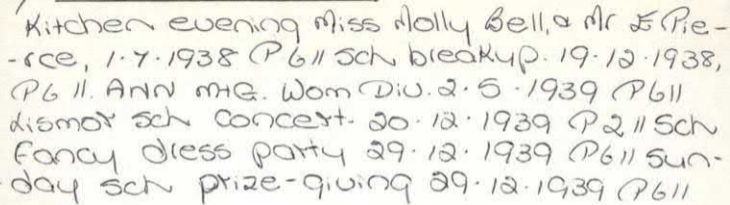 Kitchen evening Miss Molly Bell, & Mr E Pie-
-rce, 1.7.1938 P6 // Sch breakup. 19.12.1938,
P6 //. ANN MTG. Wom Div. 2.5.1939 P6 //
Lismor Sch concert. 20.12.1939 P2 // Sch
Fancy dress party 29.12.1939 P6 // Sun-
-day sch prize-giving 29.12.1939 P6 //